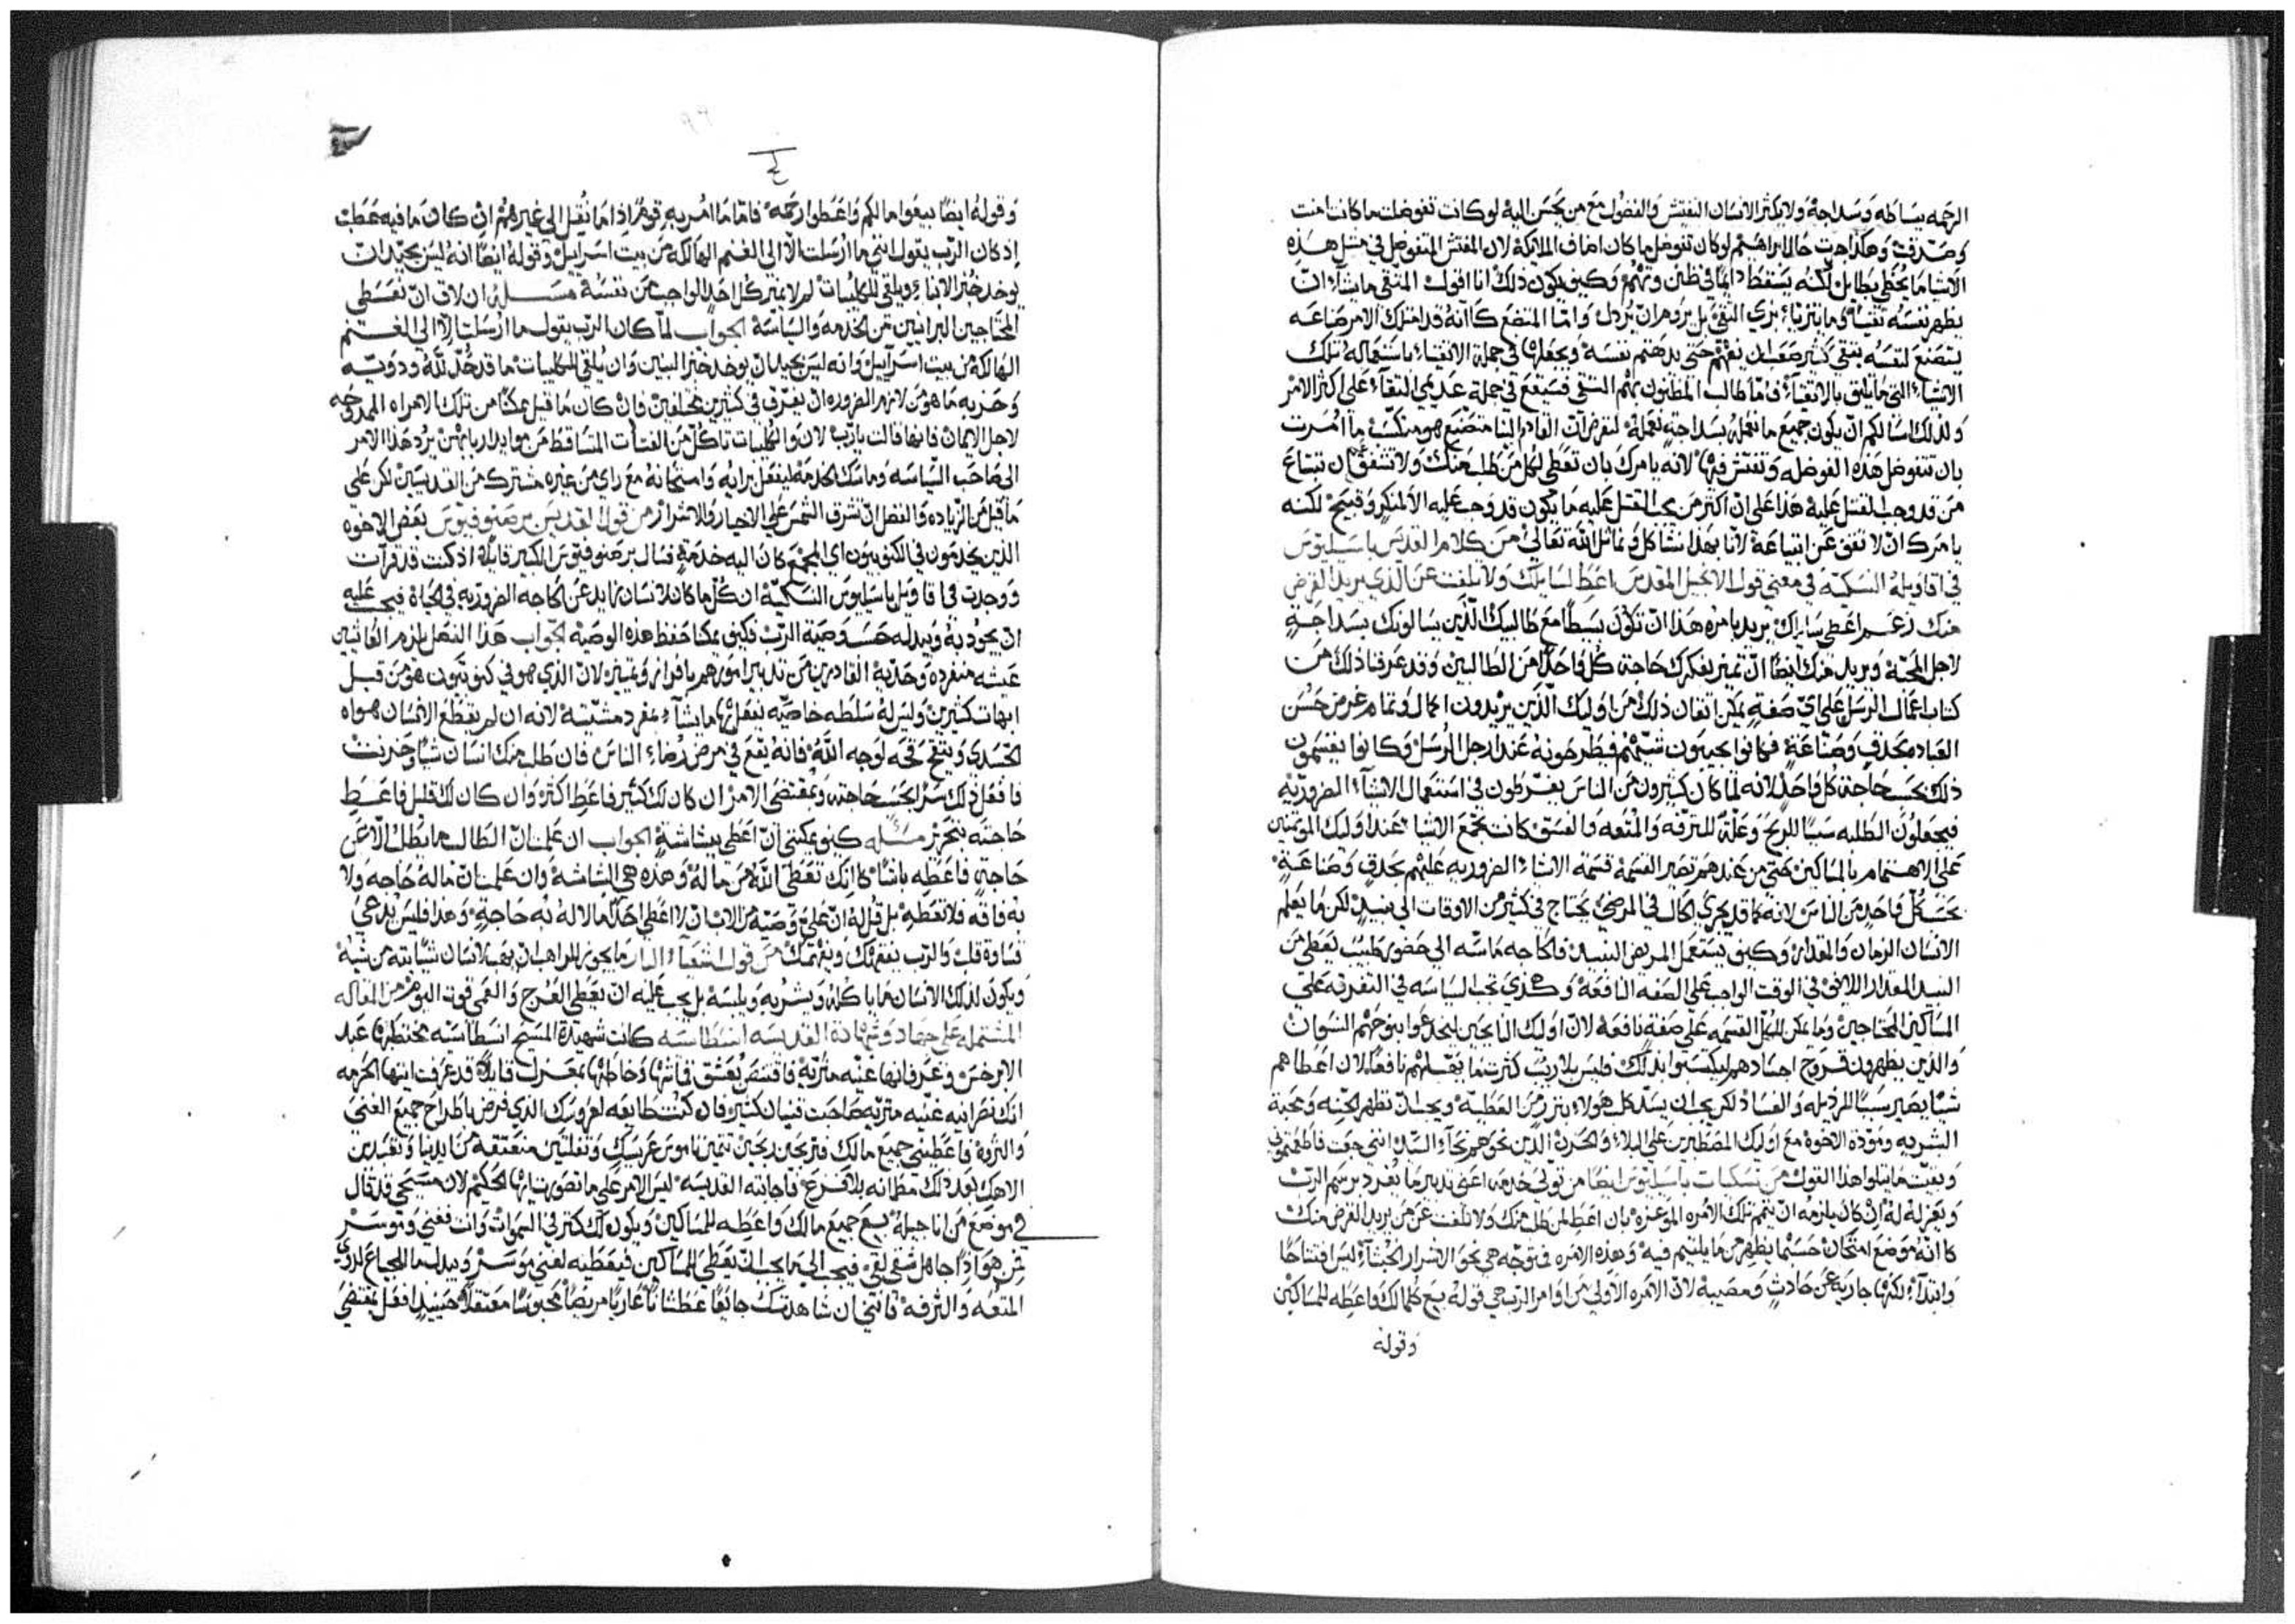 الرحمه ببساطه وسداجه ولا يكثر الانسان التفتيش والفضول مع من يحسن اليه لو كانت تفوضلت ما كانت امنت
وصدقت وهكذا جرت حال ابراهيم لو كان تفوضل ما كان اضاف الملايكة لان المفتش المتفوضل في مثل هذه
الاشيا ما يحظي بطايل لكنه يسقط دايمًا في ظنن وتهم وكيف يكون ذلك انا اقول المتقي ما يشاء ان
يظهر نفسه تقيًا وما يتزيا بزي التقي بل يروم ان يرذل واما المتصنع كانه قد امتلك الامر صناعه
يتصنع لنفسه بتقي كثير حتي يدهتم نفسه ويجعلها في جملة الاتقياء باستعماله تلك
الاشياء التي ما تليق بالاتقياء فاما طالب المظنون بهم التقي فسيقع في جملة عديمي التقاء علي اكثر الامر
ولذلك اسالكم ان يكون جميع ما نعمله بسداجه نعمله لنفرض ان القادم الينا متصنع هو متكسب ما امرت
بان تتفوضل هذه الفوضله وتفتش فيها لانه يامرك بان تعطي لكل من طلب منك ولا تشفق ان تبتاع
من قد وجب القتل عليه هذا علي ان اكثر من يجب القتل عليه ما يكون قد وجب عليه الا لمنكر وقبيح لكنه
يامرك ان لا تقف عن ابتياعه لانا بهذا نشاكل ونماثل الله تعالي من كلام القديس باسيليوس
في اقاويله النسكيه في معني قول الانجيل المقدس اعط لسايلك ولا تلفت عن الذي يريد القرض
منك زعم اعطي سايلك يريد بامره هذا ان تكون بسيطًا مع طالبيك الذين يسالونك بسداجةٍ
لاجل المحبة ويريد منك ايضًا ان تميز بفكرك حاجة كل واحدٍ من الطالبين وقد عرفنا ذلك من
كتاب اعمال الرسل علي اي صفةٍ يمكن اتقان ذلك من اوليك الذين يريدون اكمال وتمام غرض حسن
العباده بحذقٍ وصناعةٍ فكانوا يجيبون شيهم فيطرحونه عند ارجل الرسل وكانوا يقسمون
ذلك بحسب حاجة كل واحدٍ لانه لما كان كثيرون من الناس يفرطون في استعمال الاشياء الضروريه
فيجعلون الطلبه سببًا للربح وعلة للترفه والمتعه والفسق كانت تجمع الاشيا عند اوليك الموتمنين
علي الاهتمام بالمساكين حتي من عندهم تصير القسمة قسمة الاشياء الضروريه عليهم بحذقٍ وصناعةٍ
بحسب كل واحدٍ من الناس لانه كما قد يجري الحال في المرضي يحتاج في كثير من الاوقات الي نبيذٍ لكن ما يعلم
الانسان الزمان والمقدار وكيف يستعمل المريض النبيذ فالحاجه ماسه الي حضور طبيب يعطي من
النبيذ المقدار اللايق في الوقت الواجب علي الصفه النافعة وهكذي تجب السياسه في التفرقه علي
المساكين المحتاجين وما يمكن الكل القسمه علي صفةٍ نافعة لان اوليك النايحين ليخدعوا بنوحهم النسوان
والذين يظهرون قروح اجسادهم ليكسبوا بذلك فليس بلا ريب كثرت ما يقسم لهم نافعًا لان اعطاهم
شيًا يصير سببًا للرذيله والفساد لكن يجب ان يسد كل هولاء بنزرٍ من العطية ويجب ان تظهر الحنه ومحبة
البشريه ومودة الاخوه مع اوليك المصطبرين علي البلاء والحزن الذين نحوهم نحاء السيد انني جعت فاطعمتموني
وبقيت ما يتلوا هذا القول من نسكيات باسيليوس ايضًا من تولي خدمه اعني تدبير ما يفرد برسم الرب
ويعزله له ان كان يلزمه ان يتمم تلك الامره الموعزه بان اعط لمن طلب منك ولا تلفت عن من يريد القرض منك
كانه موضع امتحان حسبما يظهر من ما يليتيم فيه وهذه الامره فمتوجه هي نحو الاشرار الخبثاء ليس افتتاحًا
وابتداء لكنها جارية عن حادثٍ ومصيبة لان الامره الاولي من اوامر الرب هي قوله بيع كلما لك واعطه للمساكين
وقوله
وقوله ايضًا بيعوا مالكم واعطوا رحمة فاما ما امر به قوم اذا ما نقل الي غيرهم ان كان ما فيه عطب
اذ كان الرب يقول انني ما ارسلت الا الي الغنم الهالكه من بيت اسراييل وقوله ايضًا انه ليس بجيد ان
يوخد خبز الابناء ويلقي للكليبات لم لا يميز كل احد الواجب من نفسه مسله ان لاق ان تعطي
المحتاجين البرانيين من الخدمه والسياسة الجواب لما كان الرب يقول ما ارسلت الا الي الغنم
الهالكه من بيت اسراييل وانه ليس بجيد ان يوخد خبز البنين وان يلقي للكليبات ما قد حد لله وذويه
وحزبه ما هو من لازم الضروره ان يفرق في كثيرين مختلفين فان كان ما قيل ممكنًا من تلك الامراه الممدوحه
لاجل الايمان فانها قالت يارب لان والكليبات تاكل من الفتات المتساقط من موايد اربابهن يرد هذا الامر
الي صاحب السياسه وماسك الخدمة ليفعل برايه وامتحانه مع راي من غيره مشترك من القديسين لكن علي
ما قيل من الزياده والفضل ان تشرق الشمس علي الاخيار والاشرار من قول القديس برصنوفيوس بعض الاخوه
الذين يخدمون في الكنوبيون اي المجمع كان اليه خدمةٍ فسال برصنوفيوس الكبير قايلًا اذ كنت قد قرات
ووجدت في اقاويل باسيليوس النسكية ان كل ما كان للانسان زايد عن الحاجه الضروريه في الحياة فيجب عليه
ان يجود به ويبدله حسب وصية الرب فكيف يمكنا حفظ هذه الوصيه الجواب هذا الفصل يلزم العايشين
عيشه منفرده وحديه القادرين من تدبير امورهم بافراز وتمييز لان الذي هو في كنوبيون هو من قبل
ابهات كثيرين وليس له سلطه خاصيه ليفعل بها ما يشاء بمفرد مشيته لانه ان لم يقطع الانسان هواه
الجسدي ويتقح قحة لوجه الله فانه يقع في مرض رضاء الناس فان طلب منك انسان شيًا وخبرت
فافعل ذلك سرًا بحسب حاجته وبمقتضي الامر ان كان لك كثير فاعط اكثر وان كان لك قليل فاعط
حاجته بتحريز مسله كيف يمكنني ان اعطي ببشاشةٍ الجواب ان علمت ان الطالب ما يطلب الا عن
حاجةٍ فاعطه باشًا كانك تعطي الله من ماله وهذه هي البشاشة وان علمت ان ماله حاجه ولا
به فاقه فلا تعطه بل قل له ان علي وصية من الاب ان لا اعطي احدًا ما لا له به حاجةٍ وهذا فليس يدعي
قساوة قلب والرب يفقهك ويفهمك من قول اشعياء البار ما يجوز للراهب ان يهب لانسان شيًا بته من شيه
ويكون لذلك الانسان ما ياكله ويشربه ويلبسه بل يجب عليه ان يعطي العرج والعمي قوت اليوم من المقاله
المشتمله علي جهاد وشهادة القديسه انسطاسيه كانت شهيدة المسيح انسطاسيه يختطبها عبد
الابرخس وعرف انها غنيه متربةٍ فاقتنص بعشق قماشها وخاطبها بمعزل قايلًا قد عرفت ايتها الحرمه
انك نصرانيه غنيه متربه صاحبت قنيان كثيره فان كنت طايعه لعروسك الذي فرض باطراح جميع الغني
والثروه فاعطيني جميع مالك فتربحين ربحين تتمين ناموس عريسك وتفلتين منعتقه من ايدينا وتعبدين
الاهك بعد ذلك مطمانه بلا فزع فاجابته القديسه ليس الامر علي ما تصورت ايها الحكيم لان مسيحي قد قال
في موضع من اناجيله بيع جميع مالك واعطه للمساكين ويكون لك كنز في السموات وانت فغني وموسر
فمن هو اذًا جاهل شقي لقي فيجب الي ما يجب ان يعطي للمساكين فيعطيه لغني موسر ويبدلها للجياع لذوي
المتعه والترفه فانني ان شاهدتك جايعًا عطشانًا عاريًا مريضًا محبوسًا معتقلًا حينيدٍ افعل بمقتضي